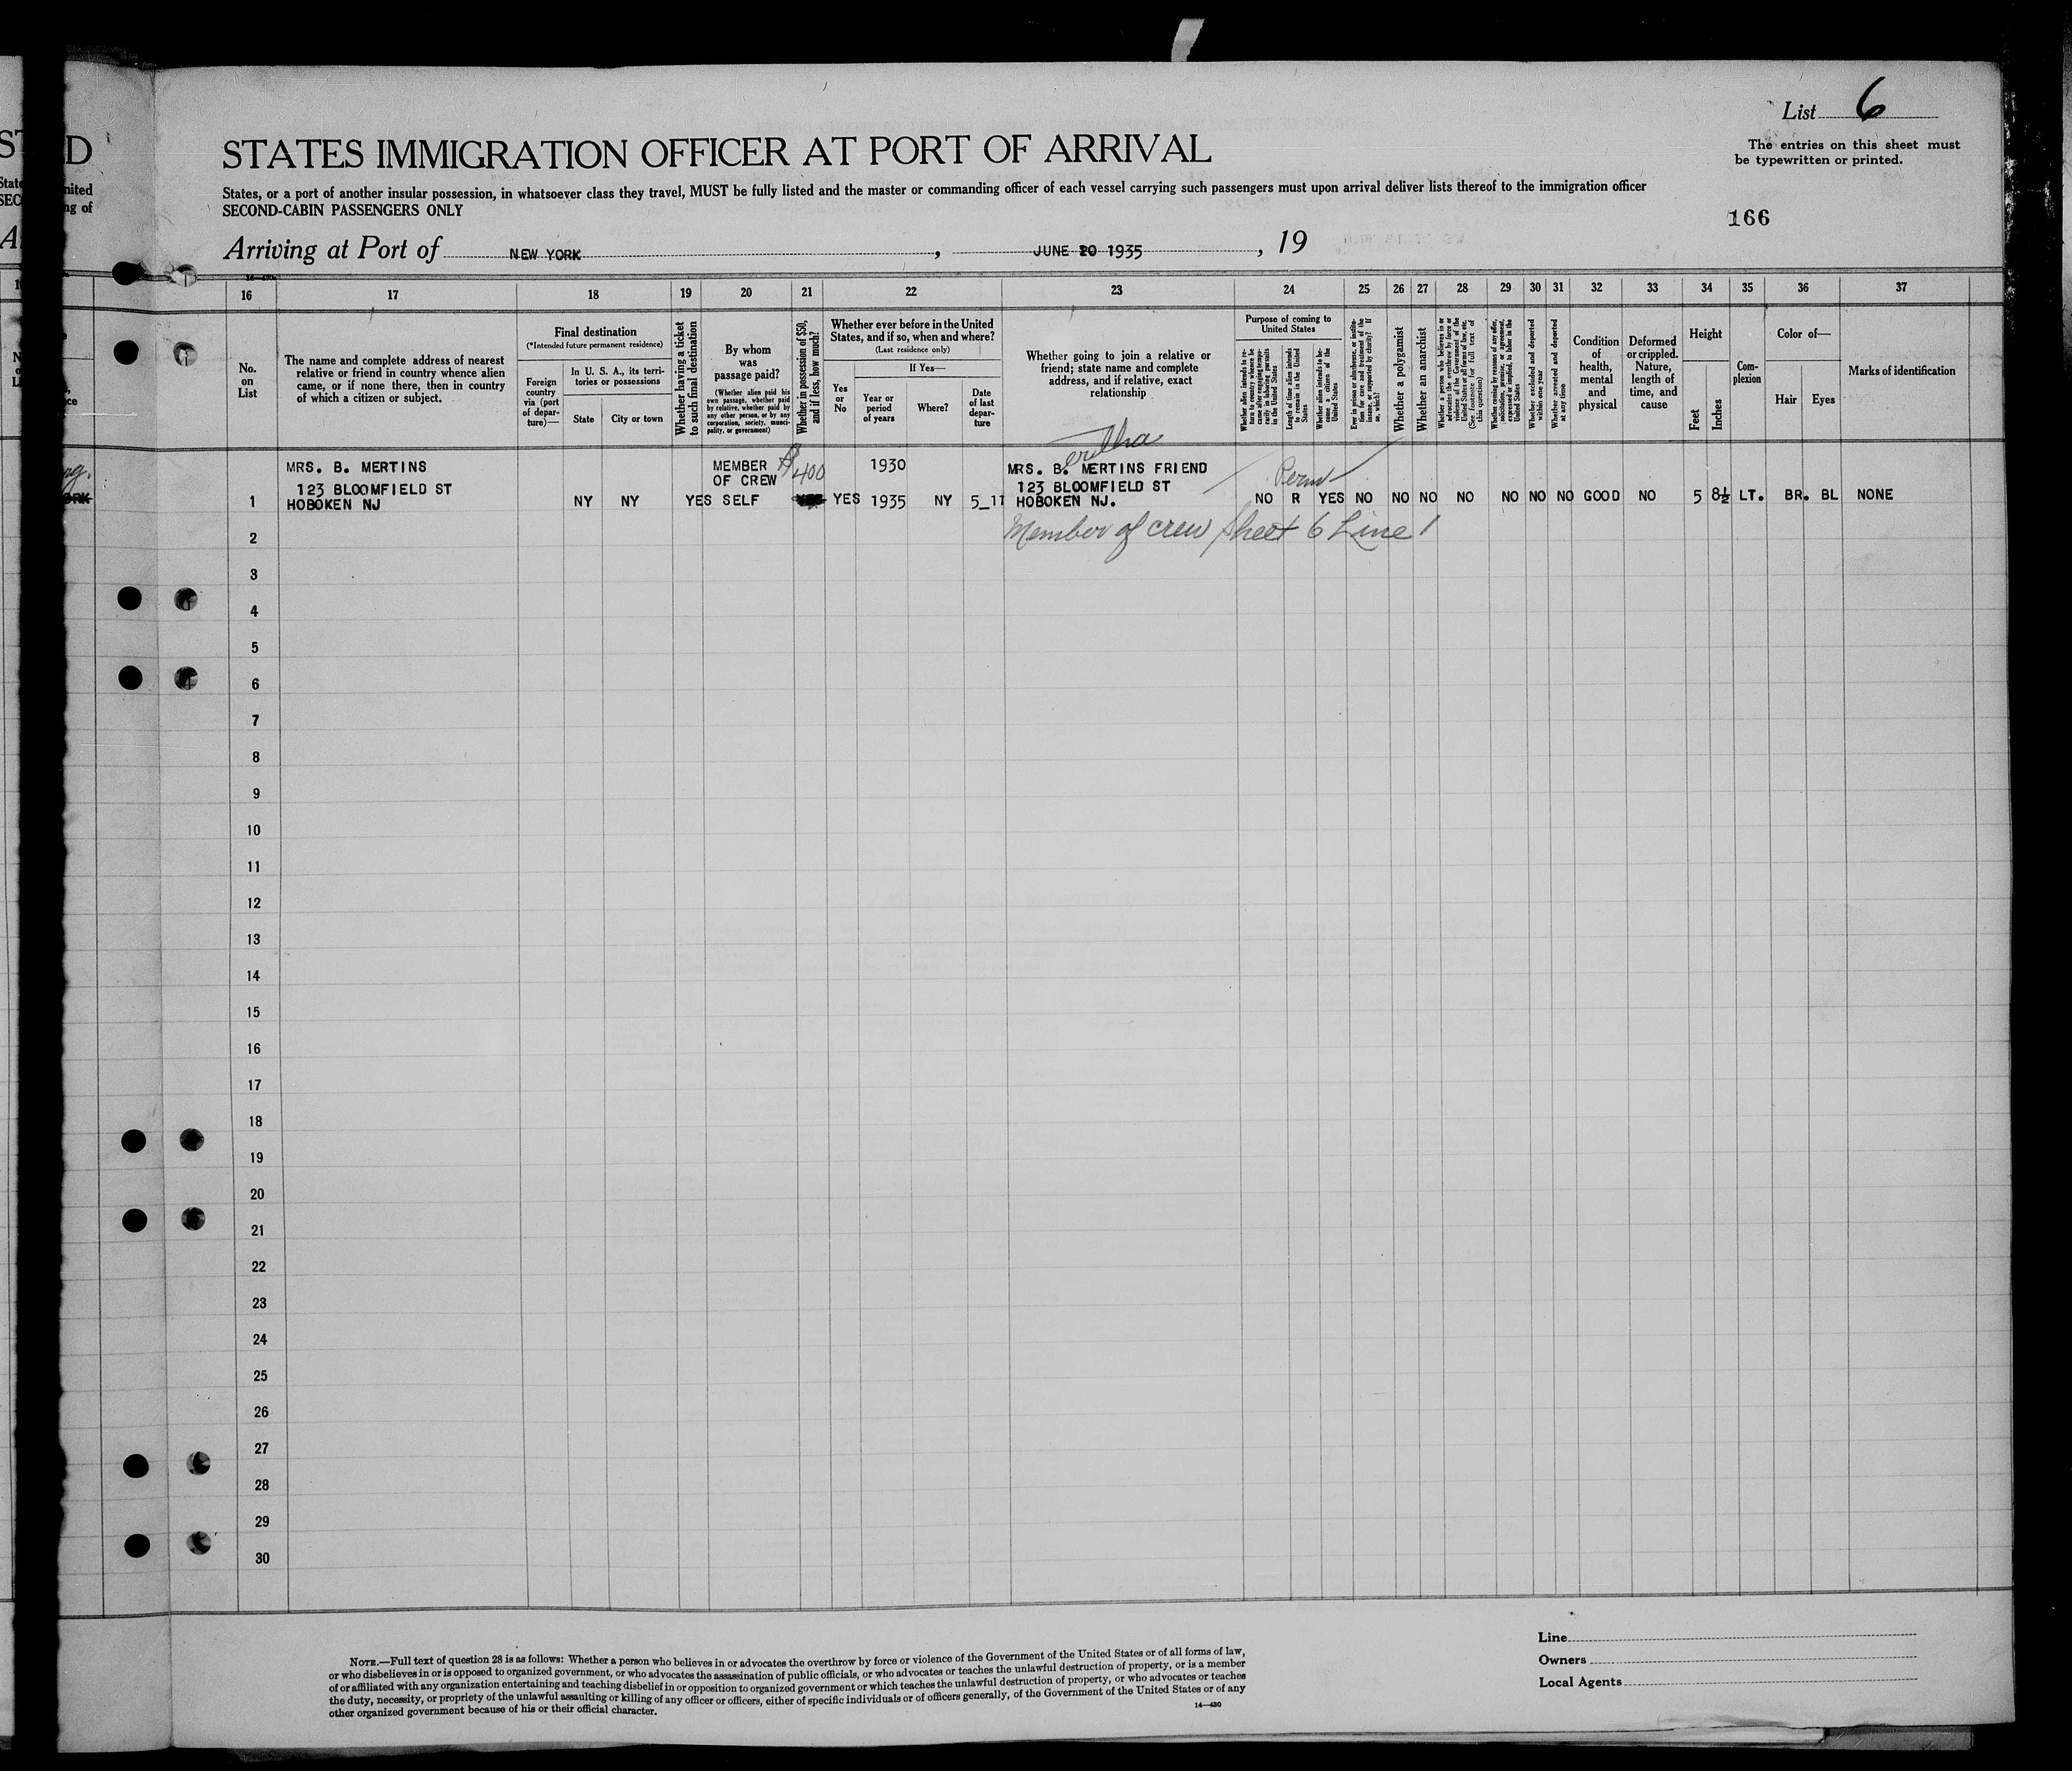 List 6
The entries on this sheet must
be typewritten or printed.
STATES IMMIGRATION OFFICER AT PORT OF ARRIVAL
States, or a port of another insular possession, in whatsoever class they travel, MUST be fully listed and the master or commanding officer of each vessel carrying such passengers must upon arrival deliver lists thereof to the immigration officer
SECOND-CABIN PASSENGERS ONLY
166
Arriving at Port of NEW YORK, JUNE 20 1935, 19
16 17 18 19 20 21 22 23 24 25 26 27 28 29 30 31 32 33 34 35 36 37
No.
on
List
The name and complete address of nearest
relative or friend in country whence alien
came, or if none there, then in country
of which a citizen or subject.
Final destination
(*Intended future permanent residence)
Foreign
country
via (port
of depar-
ture)—
In U. S. A., its terri-
tories or possessions
State
City or town
Whether having a ticket
to such final destination
By whom
was
passage paid?
(Whether alien paid his
own passage, whether paid
by relative, whether paid by
any other person, or by any
corporation, society, munici-
pality, or government)
Whether in possession of $50,
and if less, how much?
Whether ever before in the United
States, and if so, when and where?
(Last residence only)
Yes
or
No
If Yes—
Year or
period
of years
Where?
Date
of last
depar-
ture
Whether going to join a relative or
friend; state name and complete
address, and if relative, exact
relationship
Purpose of coming to
United States
Whether alien intends to re-
turn to country whence he
came after engaging tempo-
rarily in laboring pursuits
in the United States
Length of time alien intends
to remain in the United
States
Whether alien intends to be-
come a citizen of the
United States
Ever in prison or almshouse, or institu-
tion for care and treatment of the
insane, or supported by charity? If
so, which?
Whether a polygamist
Whether an anarchist
Whether a person who believes in or
advocates the overthrow by force or
violence of the Government of the
United States or all forms of law, etc.
(See footnote for full text of
this question)
Whether coming by reasons of any offer,
solicitation, promise, or agreement,
expressed or implied, to labor in the
United States
Whether excluded and deported
within one year
Whether arrested and deported
at any time
Condition
of
health,
mental
and
physical
Deformed
or crippled.
Nature,
length of
time, and
cause
Height
Feet
Inches
Com-
plexion
Color of—
Hair
Eyes
Marks of identification
MRS. B. MERTINS MEMBER $400 1930 MRS. B. MERTINS FRIEND Perm
123 BLOOMFIELD ST OF CREW 123 BLOOMFIELD ST
1 HOBOKEN NJ NY NY YES SELF YES 1935 NY 5_11 HOBOKEN NJ. NO R YES NO NO NO NO NO NO NO GOOD NO 5 8½ LT. BR. BL NONE
2 Member of crew Sheet 6 Line 1
3
4
5
6
7
8
9
10
11
12
13
14
15
16
17
18
19
20
21
22
23
24
25
26
27
28
29
30
NOTE.—Full text of question 28 is as follows: Whether a person who believes in or advocates the overthrow by force or violence of the Government of the United States or of all forms of law,
or who disbelieves in or is opposed to organized government, or who advocates the assassination of public officials, or who advocates or teaches the unlawful destruction of property, or is a member
of or affiliated with any organization entertaining and teaching disbelief in or opposition to organized government or which teaches the unlawful destruction of property, or who advocates or teaches
the duty, necessity, or propriety of the unlawful assaulting or killing of any officer or officers, either of specific individuals or of officers generally, of the Government of the United States or of any
other organized government because of his or their official character.
14—430
Line
Owners
Local Agents